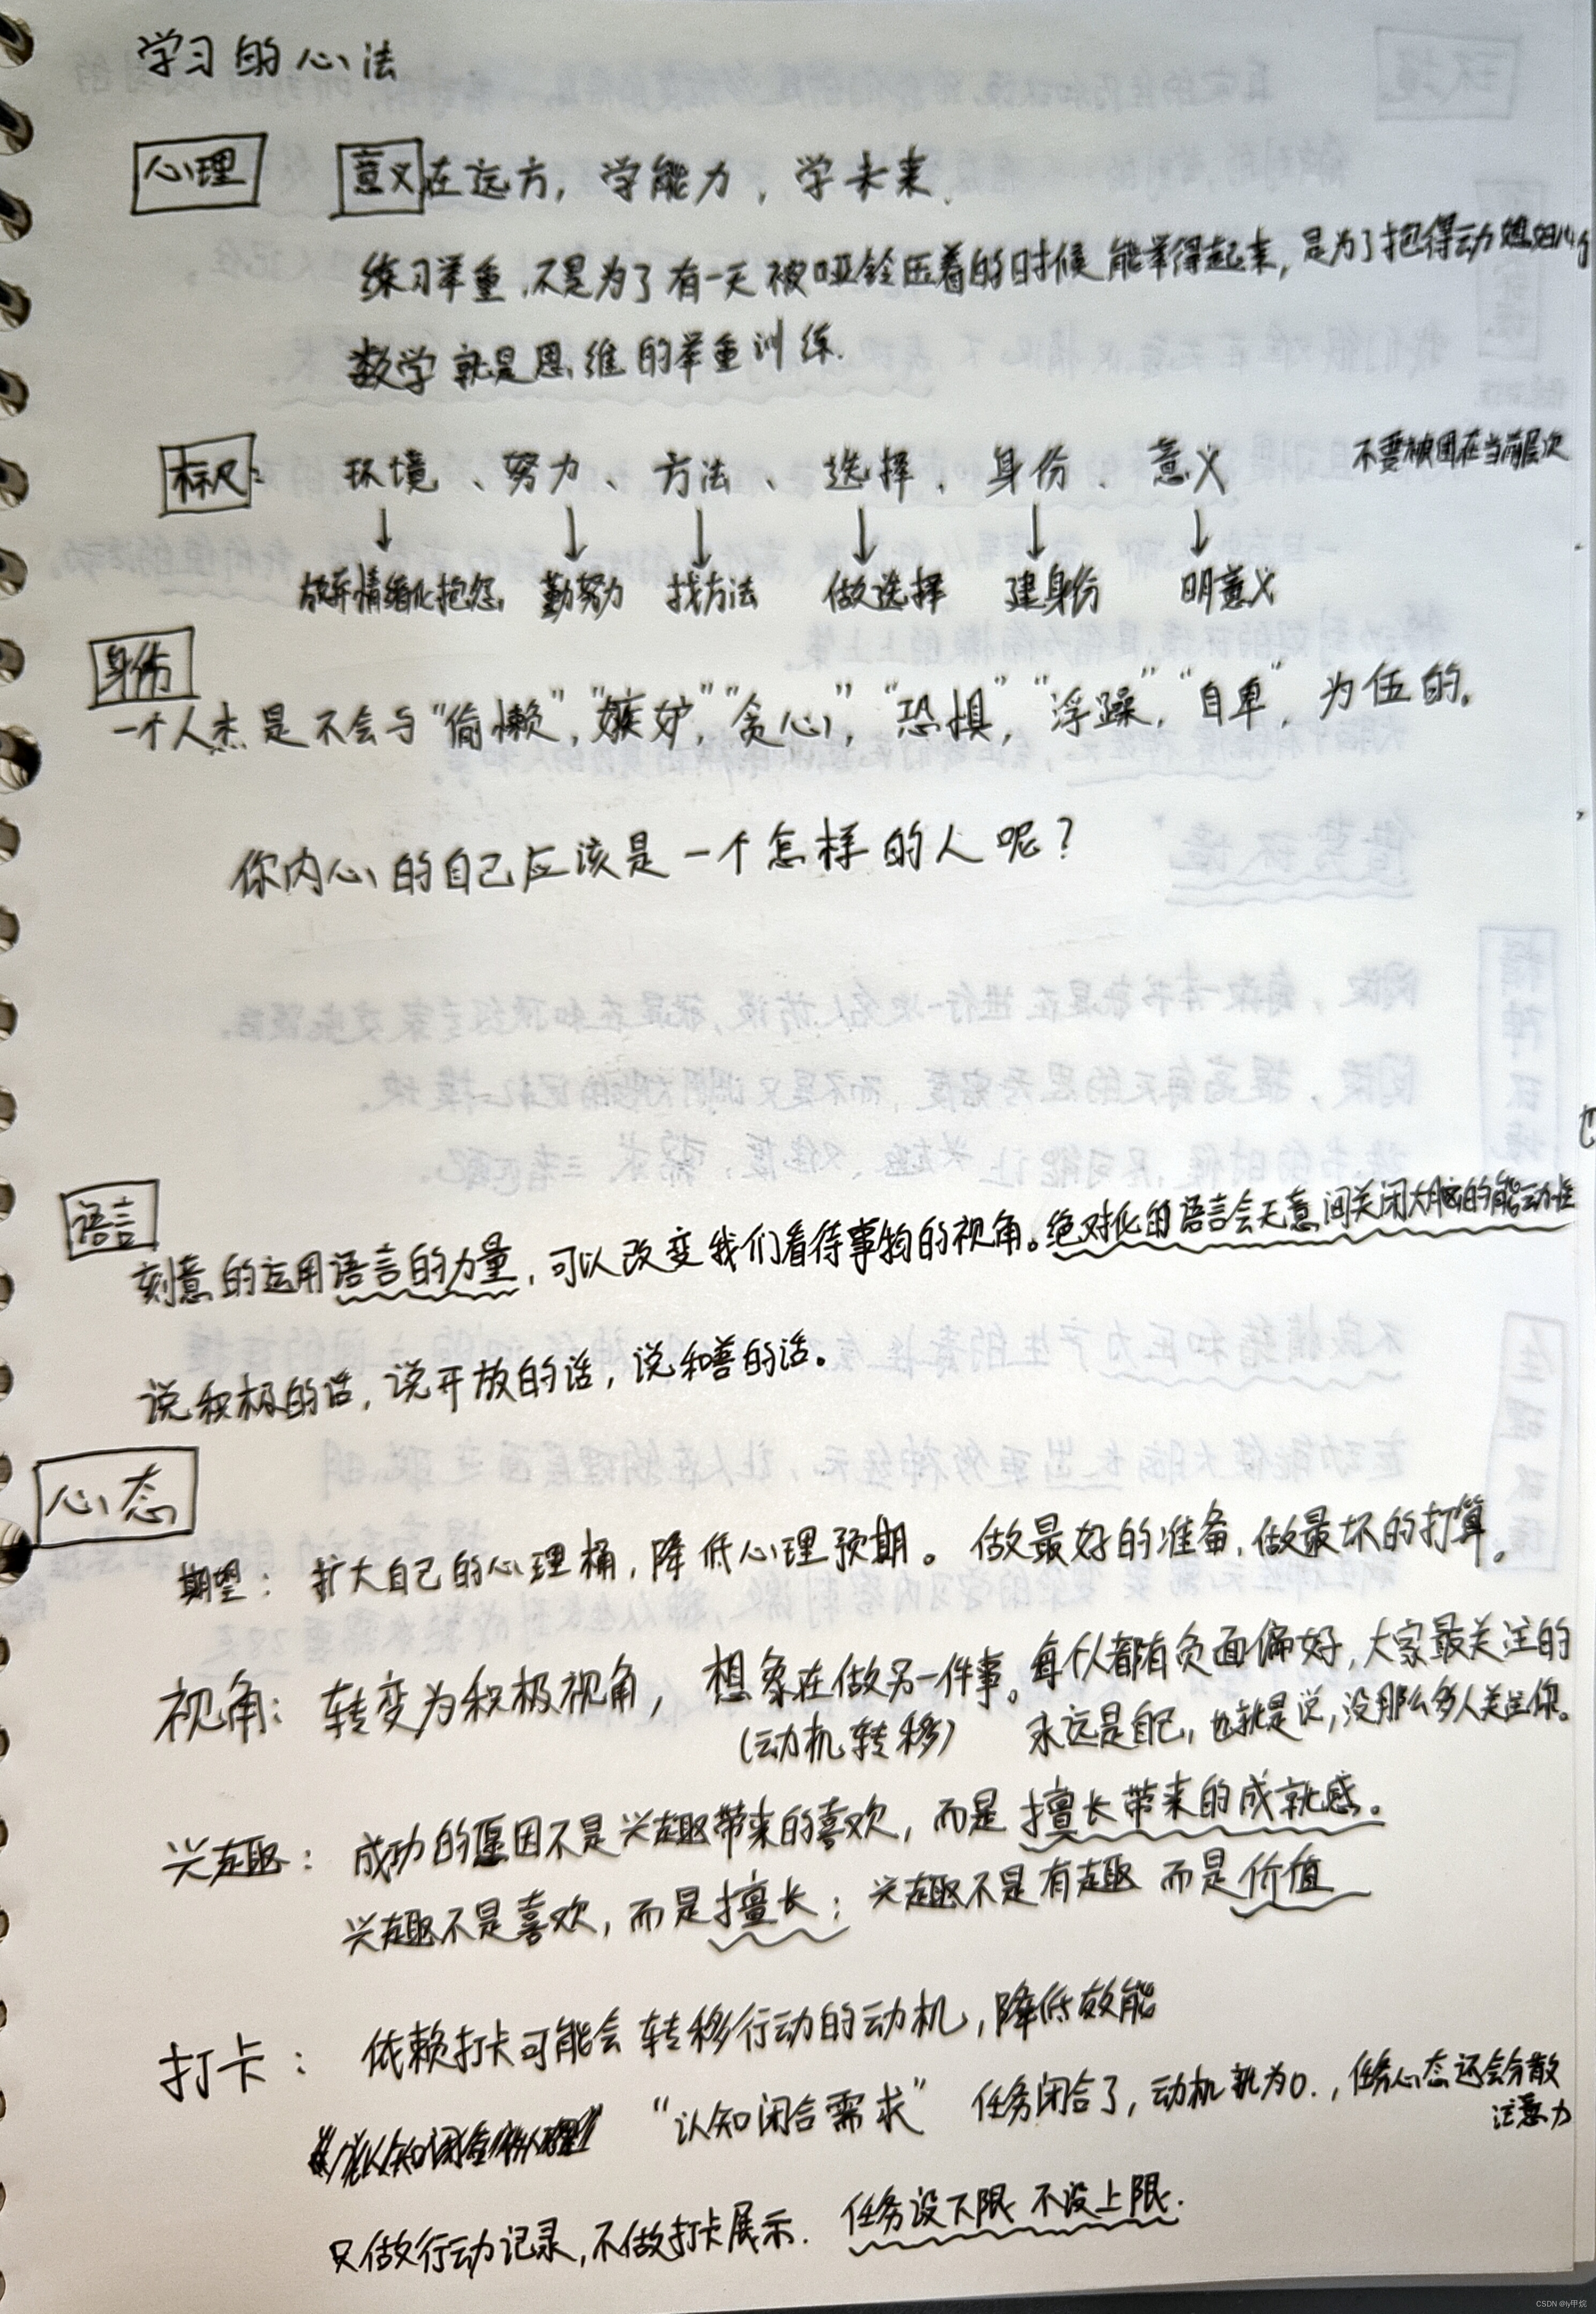 学习的心法
心理 意义在远方，学能力，学未来.
练习举重，不是为了有一天被哑铃压着的时候能举得起来，是为了抱得动媳妇儿
数学就是思维的举重训练.
标尺： 环境、努力、方法、选择、身份、意义 不要被困在当前层次
↓ ↓ ↓ ↓ ↓ ↓
放弃情绪化抱怨 勤努力 找方法 做选择 建身份 明意义
身份
一个人杰是不会与“偷懒”，“嫉妒”，“贪心”，“恐惧”，“浮躁”，“自卑”，为伍的。
你内心的自己应该是一个怎样的人呢？
语言
刻意的运用语言的力量，可以改变我们看待事物的视角。绝对化的语言会无意间关闭大脑的能动性
说积极的话，说开放的话，说和善的话。
心态
期望：扩大自己的心理桶，降低心理预期。做最好的准备，做最坏的打算。
视角：转变为积极视角，想象在做另一件事。每个人都有负面偏好，大家最关注的
（动机转移） 永远是自己，也就是说，没那么多人关注你。
兴趣：成功的原因不是兴趣带来的喜欢，而是擅长带来的成就感。
兴趣不是喜欢，而是擅长；兴趣不是有趣 而是价值
打卡：依赖打卡可能会转移行动的动机，降低效能
“认知闭合需求” 任务闭合了，动机就为0.，任务心态还会分散
注意力
只做行动记录，不做打卡展示. 任务设下限 不设上限.
CSDN @ly甲烷